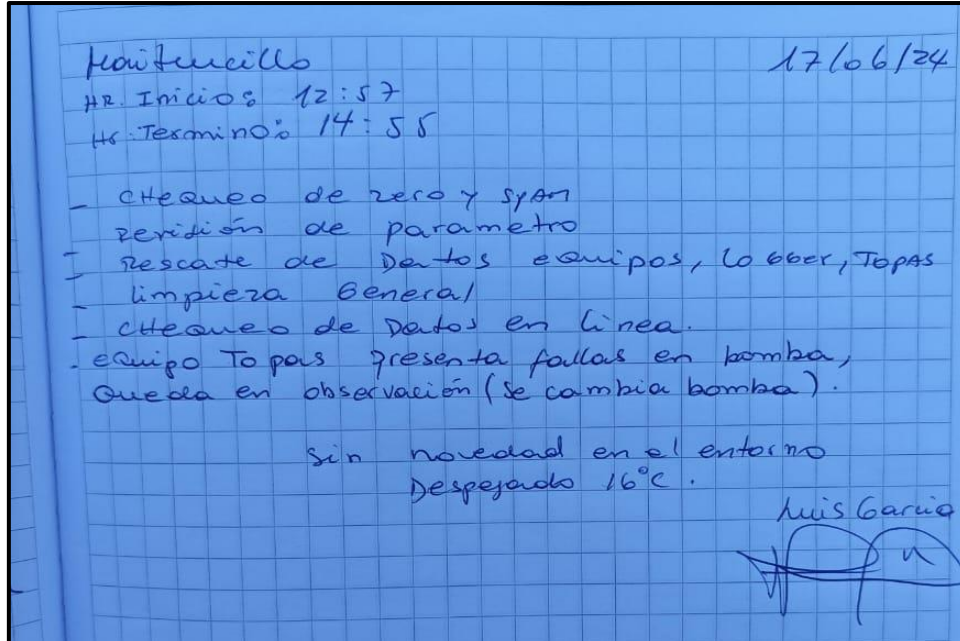 Maitencillo 17/06/24
HR. Inicio: 12:57
HR. Termino: 14:55
- CHEQUEO de zero y SPAN
- Revisión de parametro
- Rescate de Datos equipos, logger, TOPAS
- limpieza General
- CHEQUEO de Datos en linea.
- equipo Topas presenta fallas en bomba,
Queda en observación (se cambia bomba).
Sin novedad en el entorno
Despejado 16°C.
Luis Garcia